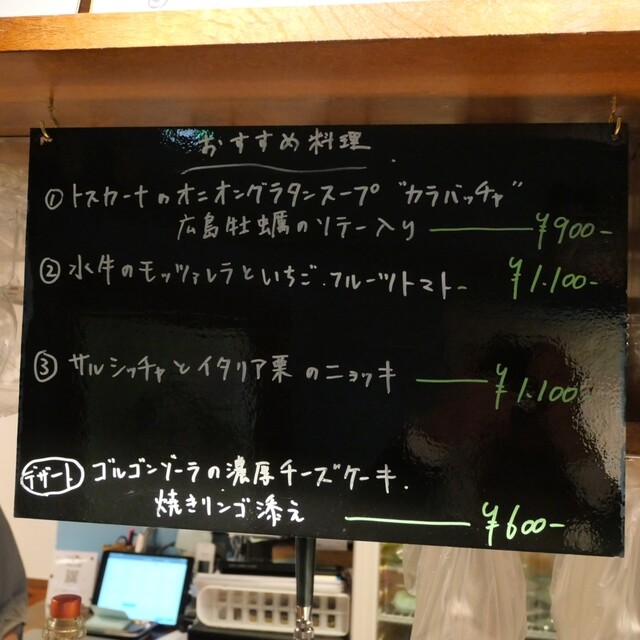 おすすめ料理
① トスカーナのオニオングラタンスープ "カラバッチャ"
広島牡蠣のソテー入り ¥900-
② 水牛のモッツァレラといちご.フルーツトマト- ¥1.100-
③ サルシッチャとイタリア栗のニョッキ ¥1.100-
デザート ゴルゴンゾーラの濃厚チーズケーキ.
焼きリンゴ添え ¥600-